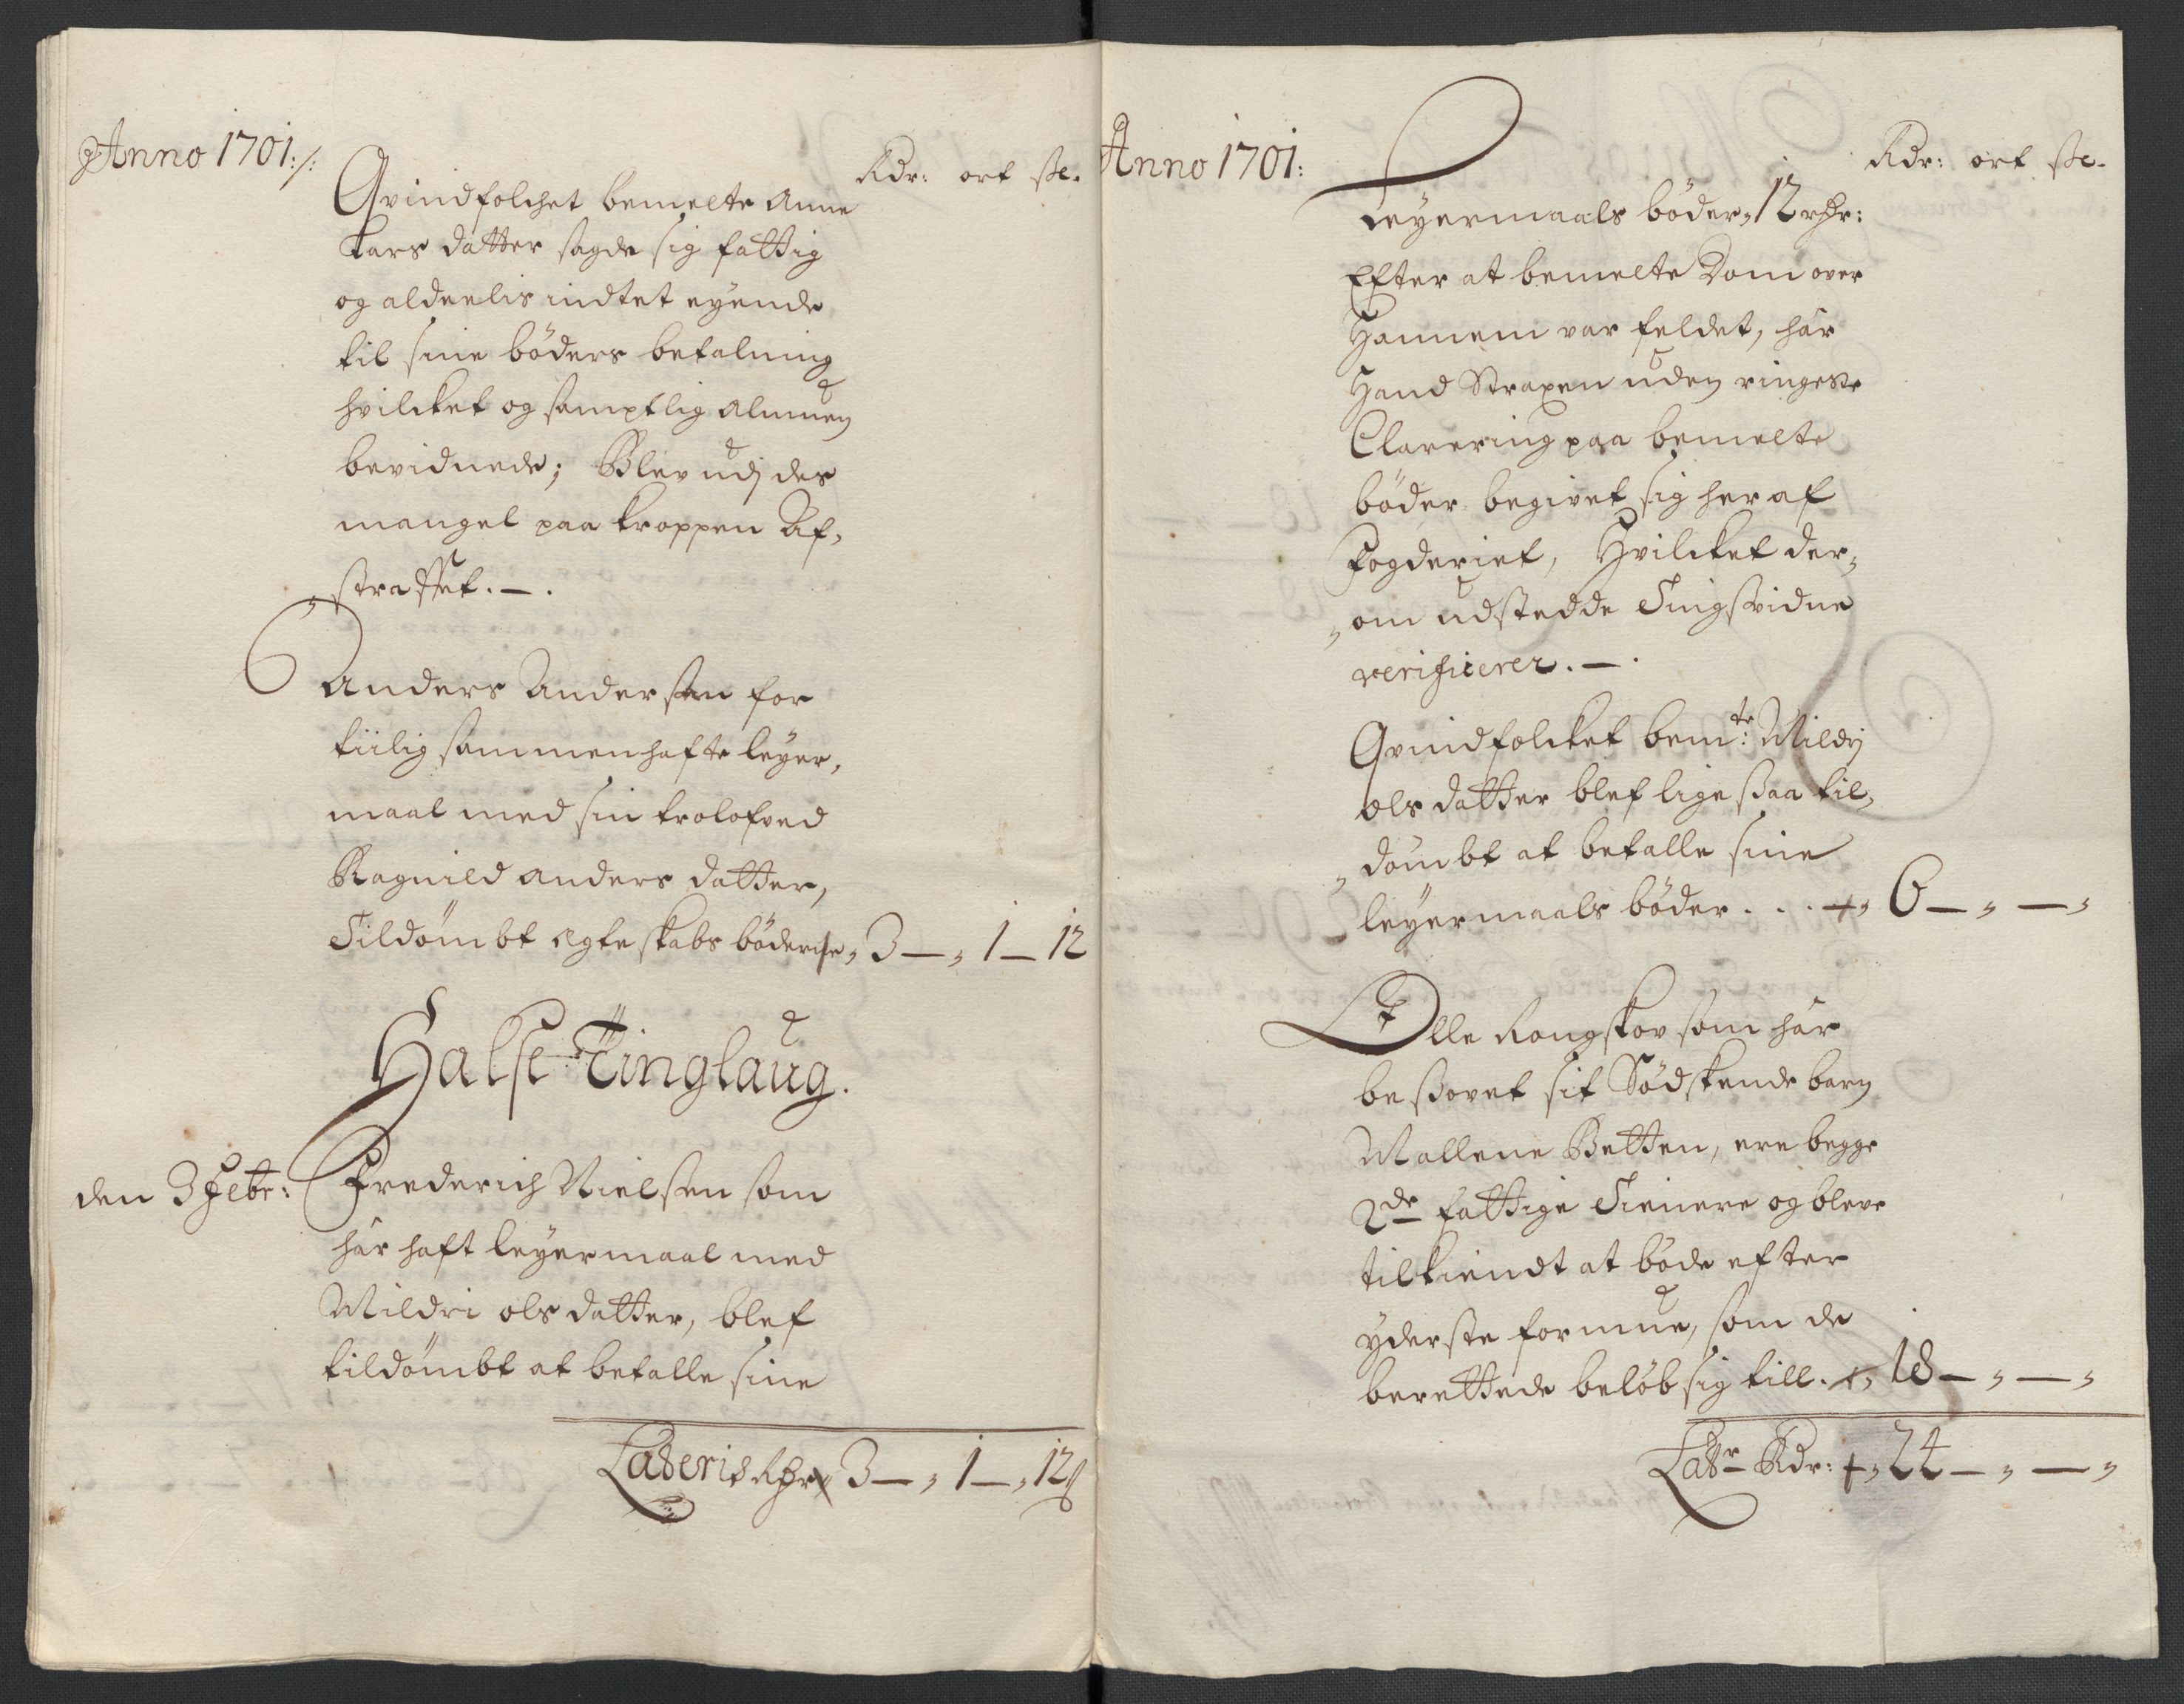 Anno 1701:/:
Rdr: ort sk.
Qvindfolchet bemelte Anne
Lars datter sagde sig fattig
og aldeelis indtet eyende
til sine böders betalning
hvilcket og samptlig almuen
bevidnede; Blev udj des
mangel paa kroppen Af,
„straffet. — .
Anders Andersen for
tiilig sammenhafte leyer,
maal med sin trolofved
Ragnild Anders datter,
Tildömbt Egteskabs böderne „ 3 — „ 1 — 12
Halse Tinglaug.
den 3 Febr:
Frederich Nielsen som
har haft leyermaal med
Mildri ols datter, blef
tildömbt at betalle sine
Lateris Rdr 3 — „ 1 — „ 12 s
Anno 1701:
Rdr: ort sk.
Leyermaals böder „ 12 rdr:
Efter at bemelte Dom over
Hannem var feldet, har
Hand Straxen uden ringeste
Clarering paa bemelte
böder begivet sig her af
Fogderiet, Hvilcket der„
„om udstedde Tingsvidne
verificerer. — .
Qvindfolcket bemte: Mildrj
ols datter blef lige saa til„
„dömbt at betalle sine
leyermaals böder . . . „ 6 — „ — „
Olle Rongskov som har
besovet sit Södskende barn
Mallene Betten, ere begge
2de fattige Tienere og bleve
tilkiendt at böde efter
yderste formue, som de
berettede belöb sig till. „ 18 — „ — „
Latr Rdr: „ 24 — „ — „